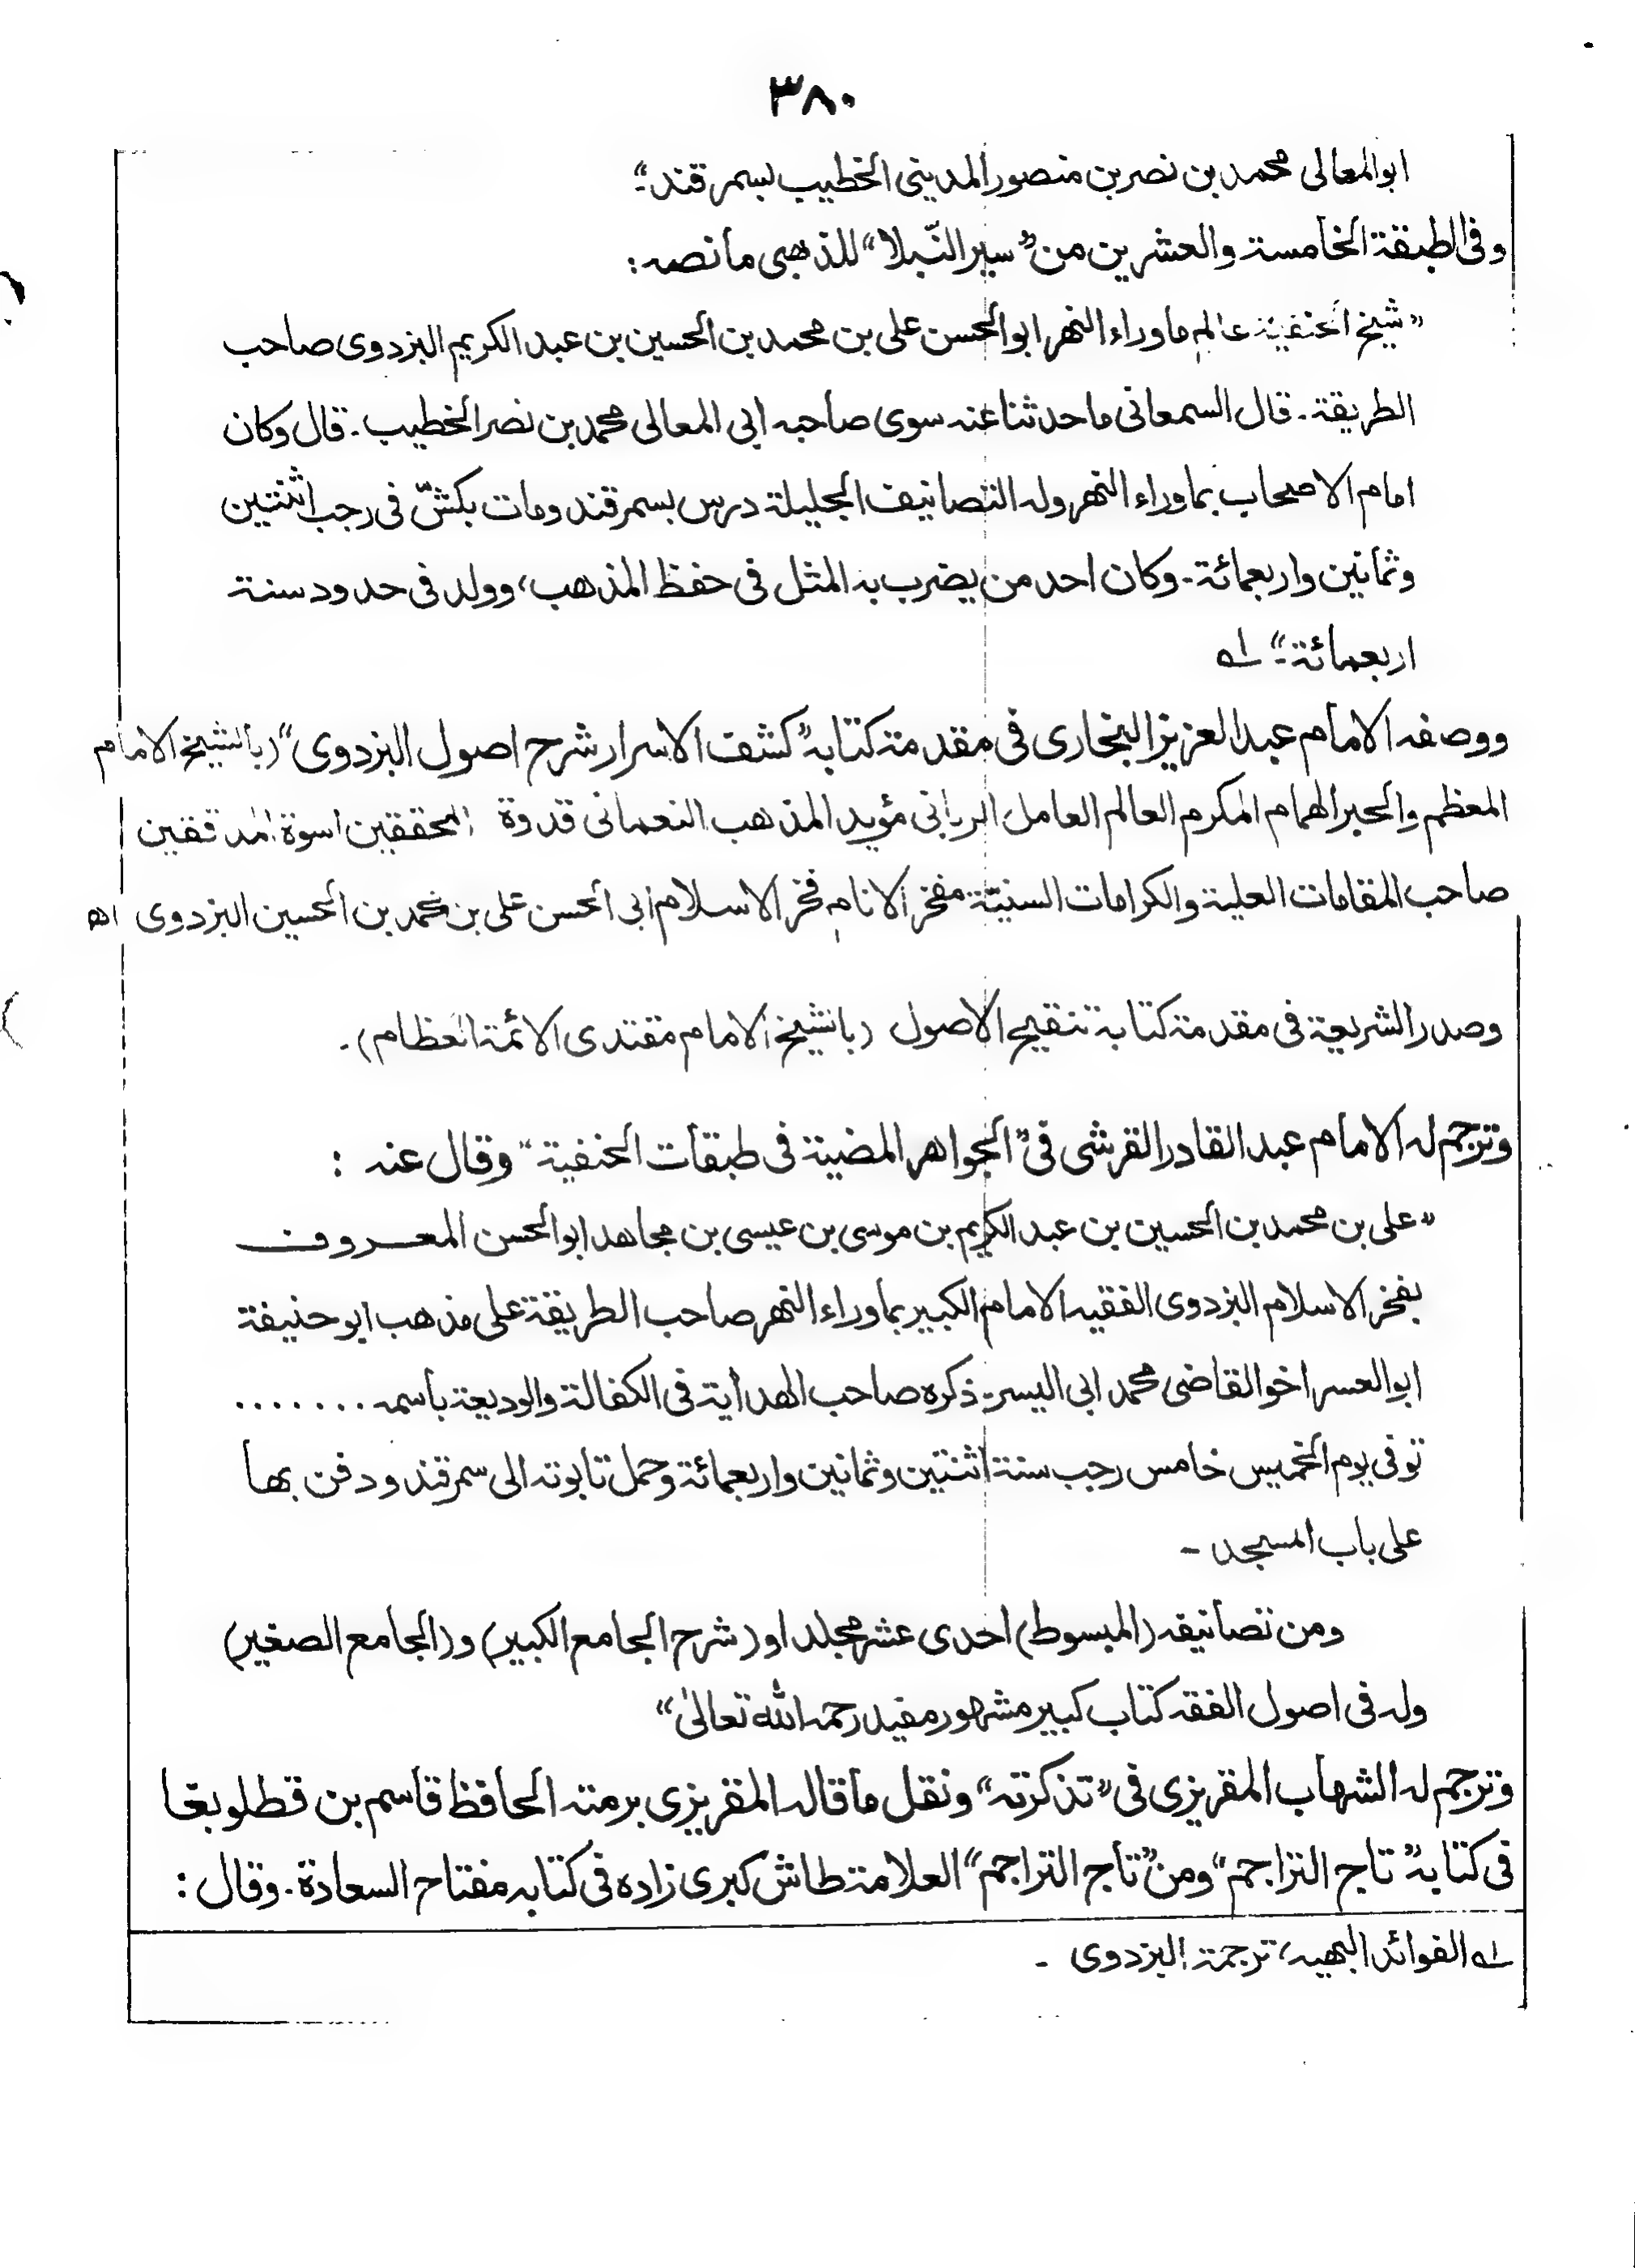 ٣٨٠
ابوالمعالی محمد بن نصر بن منصور المدینی الخطیب بسمرقند۔“
وفی الطبقة الخامسة والعشرین من ”سیر النّبلا“ للذهبی مانصه :
”شیخ الحنفیة عالم ماوراء النهر ابوالحسن علی بن محمد بن الحسین بن عبدالکریم البزدوی صاحب
الطریقة۔ قال السمعانی ماحدثنا عنه سوی صاحبه ابی المعالی محمد بن نصر الخطیب۔ قال وکان
امام الاصحاب بماوراء النهر وله التصانیف الجلیلة درس بسمرقند ومات بکشّ فی رجب اثنتین
وثمانین واربعمائة۔ وکان احد من یضرب به المثل فی حفظ المذهب، وولد فی حدود سنة
اربعمائة۔“ ١ھ
ووصفه الامام عبدالعزیز البخاری فی مقدمة کتابه ”کشف الاسرار شرح اصول البزدوی“ (بالشیخ الامام
المعظم والحبر الهمام المکرم العالم العامل الربانی مؤید المذهب النعمانی قدوة المحققین اسوة المدققین
صاحب المقامات العلیة والکرامات السنیّة مفخر الانام فخر الاسلام ابی الحسن علی بن محمد بن الحسین البزدوی اھ
وصدر الشریعة فی مقدمة کتابة تنقیح الاصول (بالشیخ الامام مقتدی الائمة العظام)۔
وترجم له الامام عبدالقادر القرشی فی ”الجواهر المضیة فی طبقات الحنفیة“ وقال عنه :
”علی بن محمد بن الحسین بن عبدالکریم بن موسی بن عیسی بن مجاهد ابوالحسن المعروف
بفخر الاسلام البزدوی الفقیه الامام الکبیر بماوراء النهر صاحب الطریقة علی مذهب ابو حنیفة
ابوالعسر اخو القاضی محمد ابی الیسر۔ ذکره صاحب الهدایة فی الکفالة والودیعة باسمه ........
توفی یوم الخمیس خامس رجب سنة اثنتین وثمانین واربعمائة وحمل تابوته الی سمرقند ودفن بها
علی باب المسجد ۔
ومن تصانیفه (المبسوط) احدی عشر مجلدا و(شرح الجامع الکبیر) و(الجامع الصغیر)
وله فی اصول الفقه کتاب کبیر مشهور مفید رحمه الله تعالیٰ“
وترجم له الشهاب المقریزی فی ”تذکرته“ ونقل ماقاله المقریزی برمته الحافظ قاسم بن قطلوبغا
فی کتابه ”تاج التراجم“ ومن ”تاج التراجم“ العلامة طاش کبری زاده فی کتابه مفتاح السعادة۔ وقال :
١ھ الفوائد البهیه، ترجمة البزدوی ۔